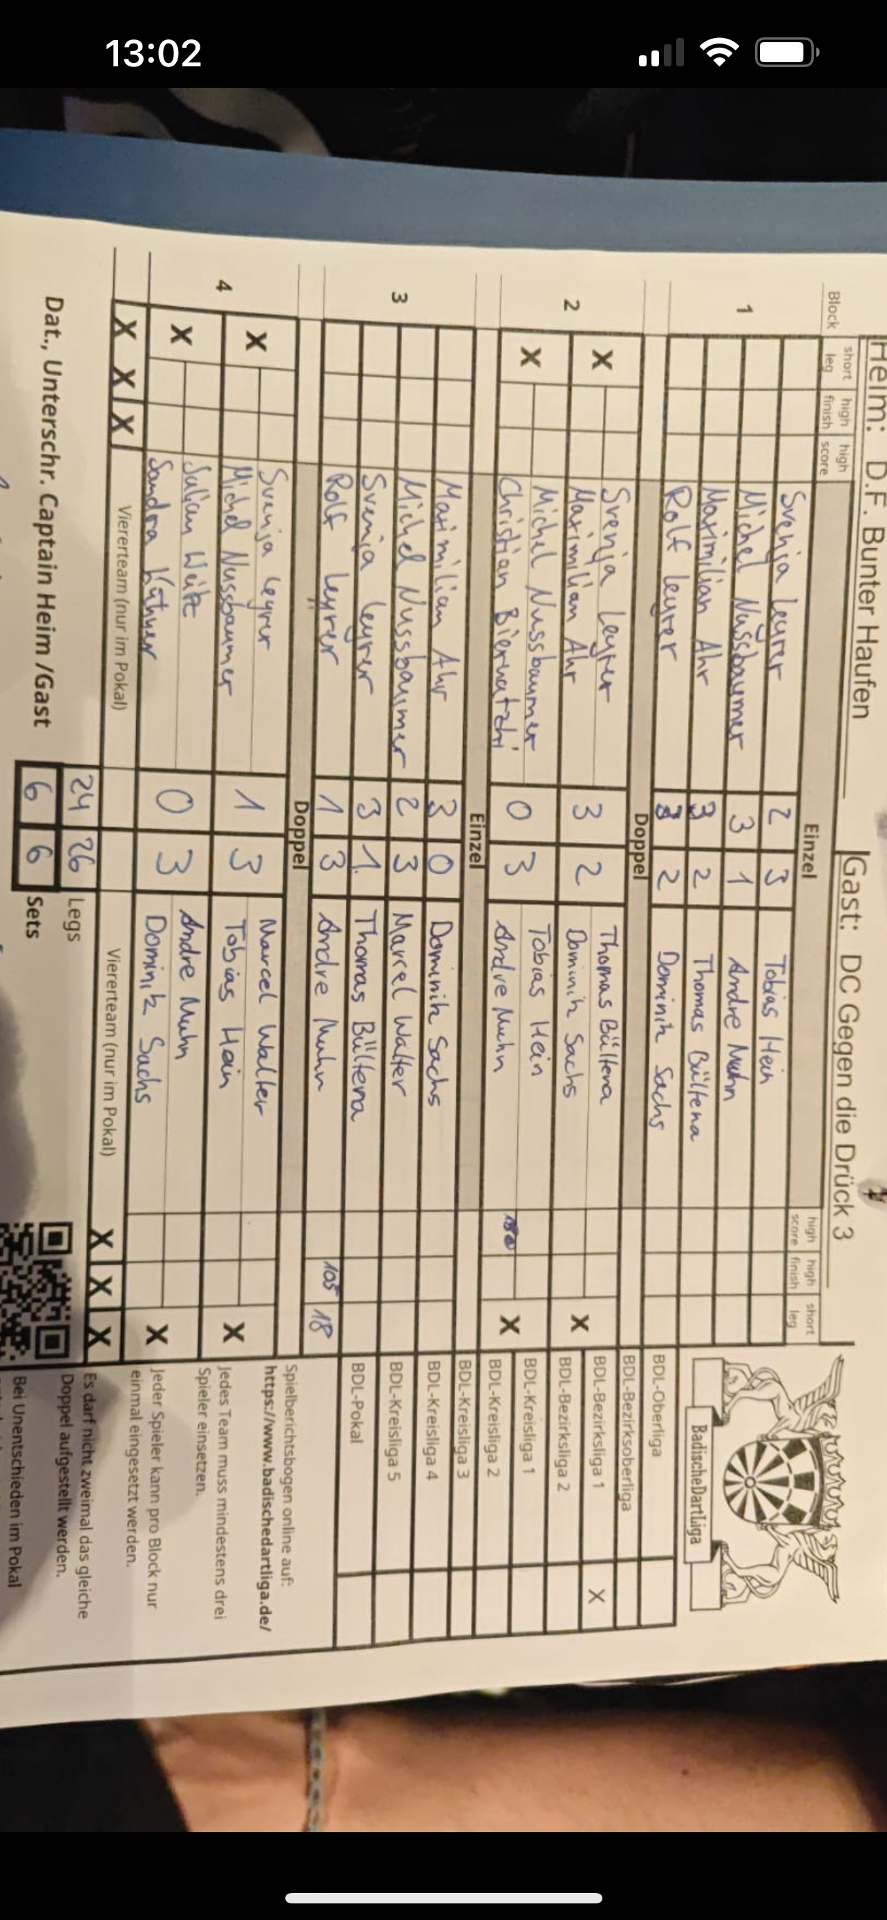 13:02
Heim: D.F. Bunter Haufen Gast: DC Gegen die Drück 3
Block short leg high finish high score Einzel high score high finish short leg
1
Svenja Leyrer 2 3 Tobias Hein
Michel Nussbaumer 3 1 Andre Muhn
Maximilian Ahr 3 2 Thomas Bültena
Rolf Leyrer 3 2 Dominik Sachs
Doppel
2
X Svenja Leyrer Thomas Bültena
Maximilian Ahr 3 2 Dominik Sachs X
X Michel Nussbaumer Tobias Hein
Christian Biernatzki 0 3 Andre Muhn 180 X
Einzel
3
Maximilian Ahr 3 0 Dominik Sachs
Michel Nussbaumer 2 3 Marcel Walter
Svenja Leyrer 3 1 Thomas Bültena
Rolf Leyrer 1 3 Andre Muhn 105 18
Doppel
4
X Svenja Leyrer Marcel Walter
Michel Nussbaumer 1 3 Tobias Hein X
X Julian Weitz Andre Muhn
Sandra Kühner 0 3 Dominik Sachs X
X X X Viererteam (nur im Pokal) Viererteam (nur im Pokal) X X X
24 26 Legs
Dat., Unterschr. Captain Heim /Gast 6 6 Sets
BadischeDartLiga
BDL-Oberliga
BDL-Bezirksoberliga
BDL-Bezirksliga 1 X
BDL-Bezirksliga 2
BDL-Kreisliga 1
BDL-Kreisliga 2
BDL-Kreisliga 3
BDL-Kreisliga 4
BDL-Kreisliga 5
BDL-Pokal
Spielberichtsbogen online auf:
https://www.badischedartliga.de/
Jedes Team muss mindestens drei
Spieler einsetzen.
Jeder Spieler kann pro Block nur
einmal eingesetzt werden.
Es darf nicht zweimal das gleiche
Doppel aufgestellt werden.
Bei Unentschieden im Pokal